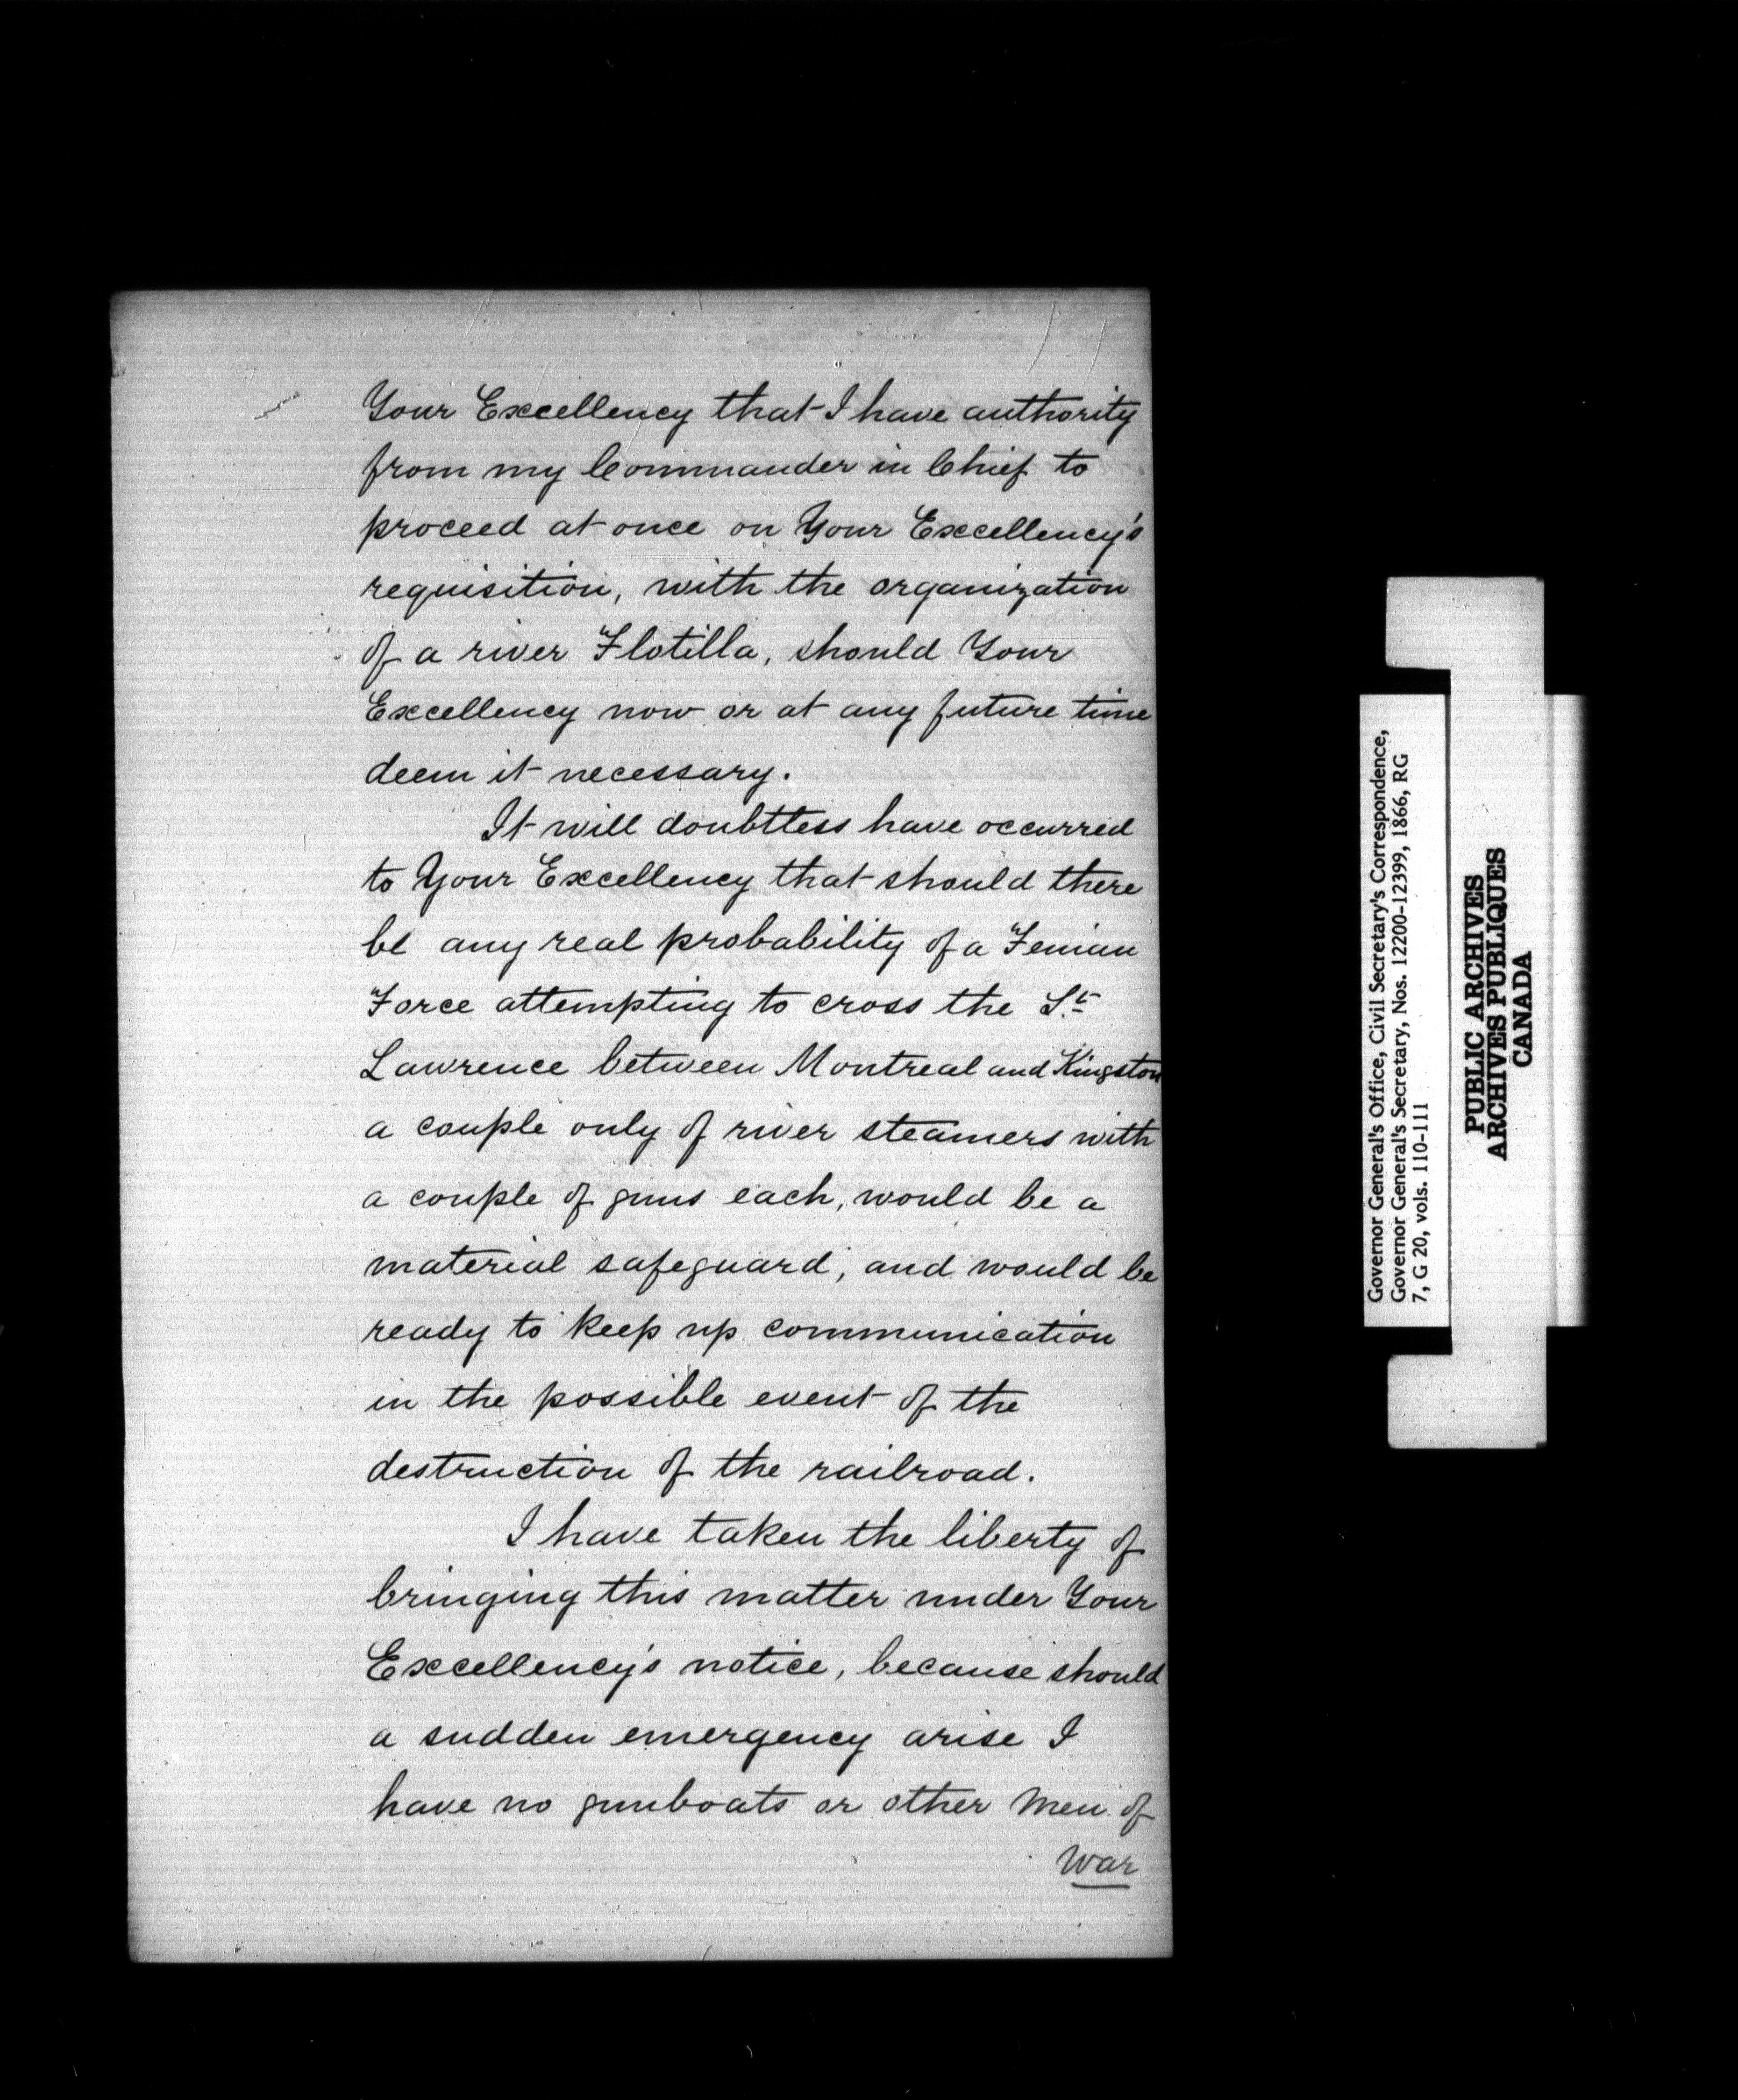 Your Excellency that I have authority
from my Commander in Chief to
proceed at once on Your Excellency's
requisition, with the organization
of a river Flotilla, should Your
Excellency now or at any future time
deem it necessary.
It will doubtless have occurred
to Your Excellency that should there
be any real probability of a Fenian
Force attempting to cross the St
Lawrence between Montreal and Kingston
a couple only of river steamers with
a couple of guns each, would be a
material safeguard, and would be
ready to keep up communication
in the possible event of the
destruction of the railroad.
I have taken the liberty of
bringing this matter under Your
Excellency's notice, because should
a sudden emergency arise I
have no gunboats or other Men of
War
Governor General's Office, Civil Secretary's Correspondence,
Governor General's Secretary, Nos. 12200-12399, 1866, RG
7, G 20, vols. 110-111
PUBLIC ARCHIVES
ARCHIVES PUBLIQUES
CANADA